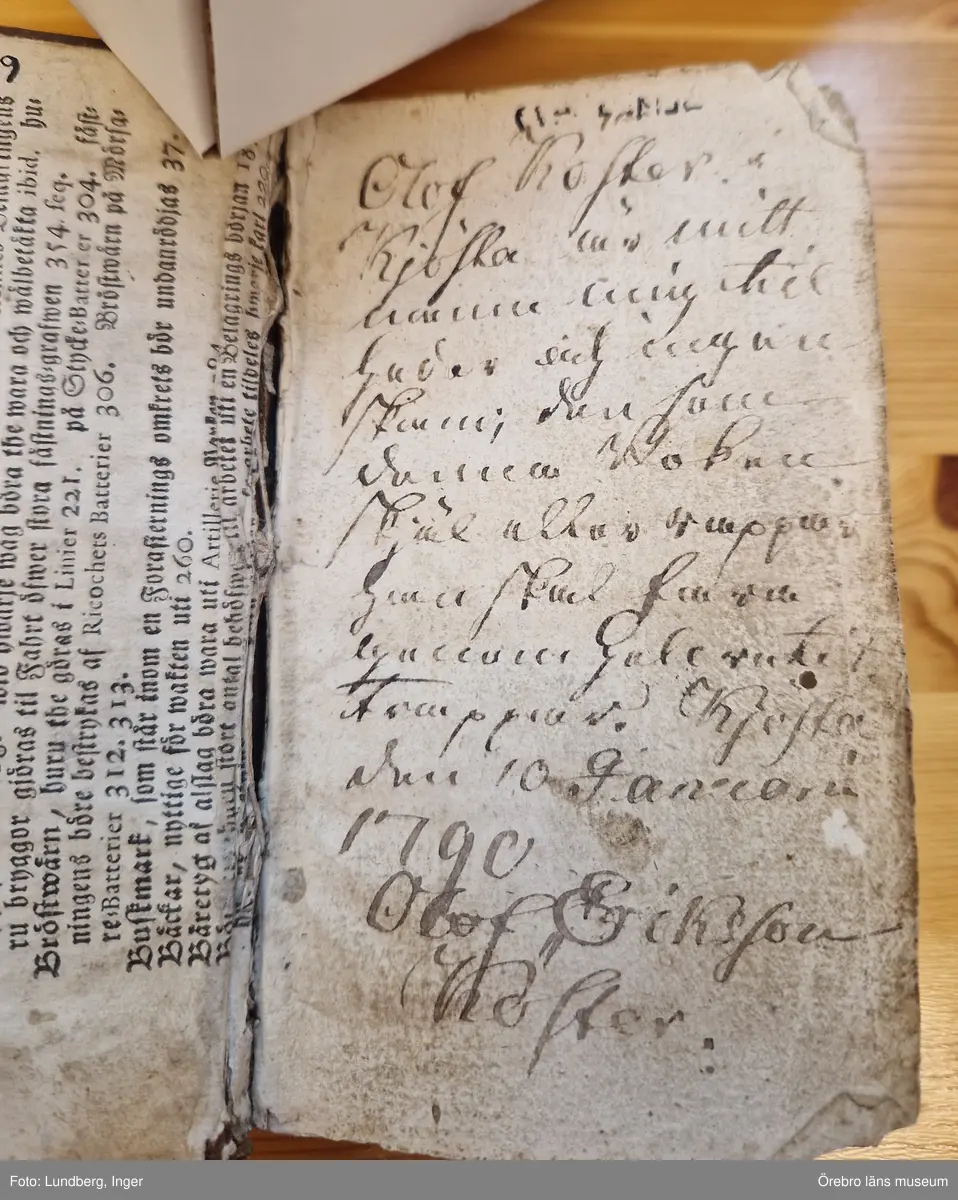 9
ru bryggor giöras til Fahrt öfwer stora fästnings-grafwen 354. seq.
Bröstwärn, huru the göras i Linier 221. på Stycke-Batterier 304. fäst-
ningens böre bestrykas af Ricochets Batterier 306. Bröstwärn på Mörsa-
re-Batterier 312. 313.
Buskmark, som står inom en Forafierings omkrets bör undanrödjas 37.
Bäckar, nyttige för wakten uti 260.
Båretyg af alslag böra wara uti Artillerie
Olof Köster. i
Kjösta är mitt
namn mig til
heder och ingen
skam, den som
denna Boken
skjäl eller rappar
han skal fara
genom
trappar. Kjösta
den 10 Januari
1790
Olof Erikson
Köster.
Foto: Lundberg, Inger
Örebro läns museum